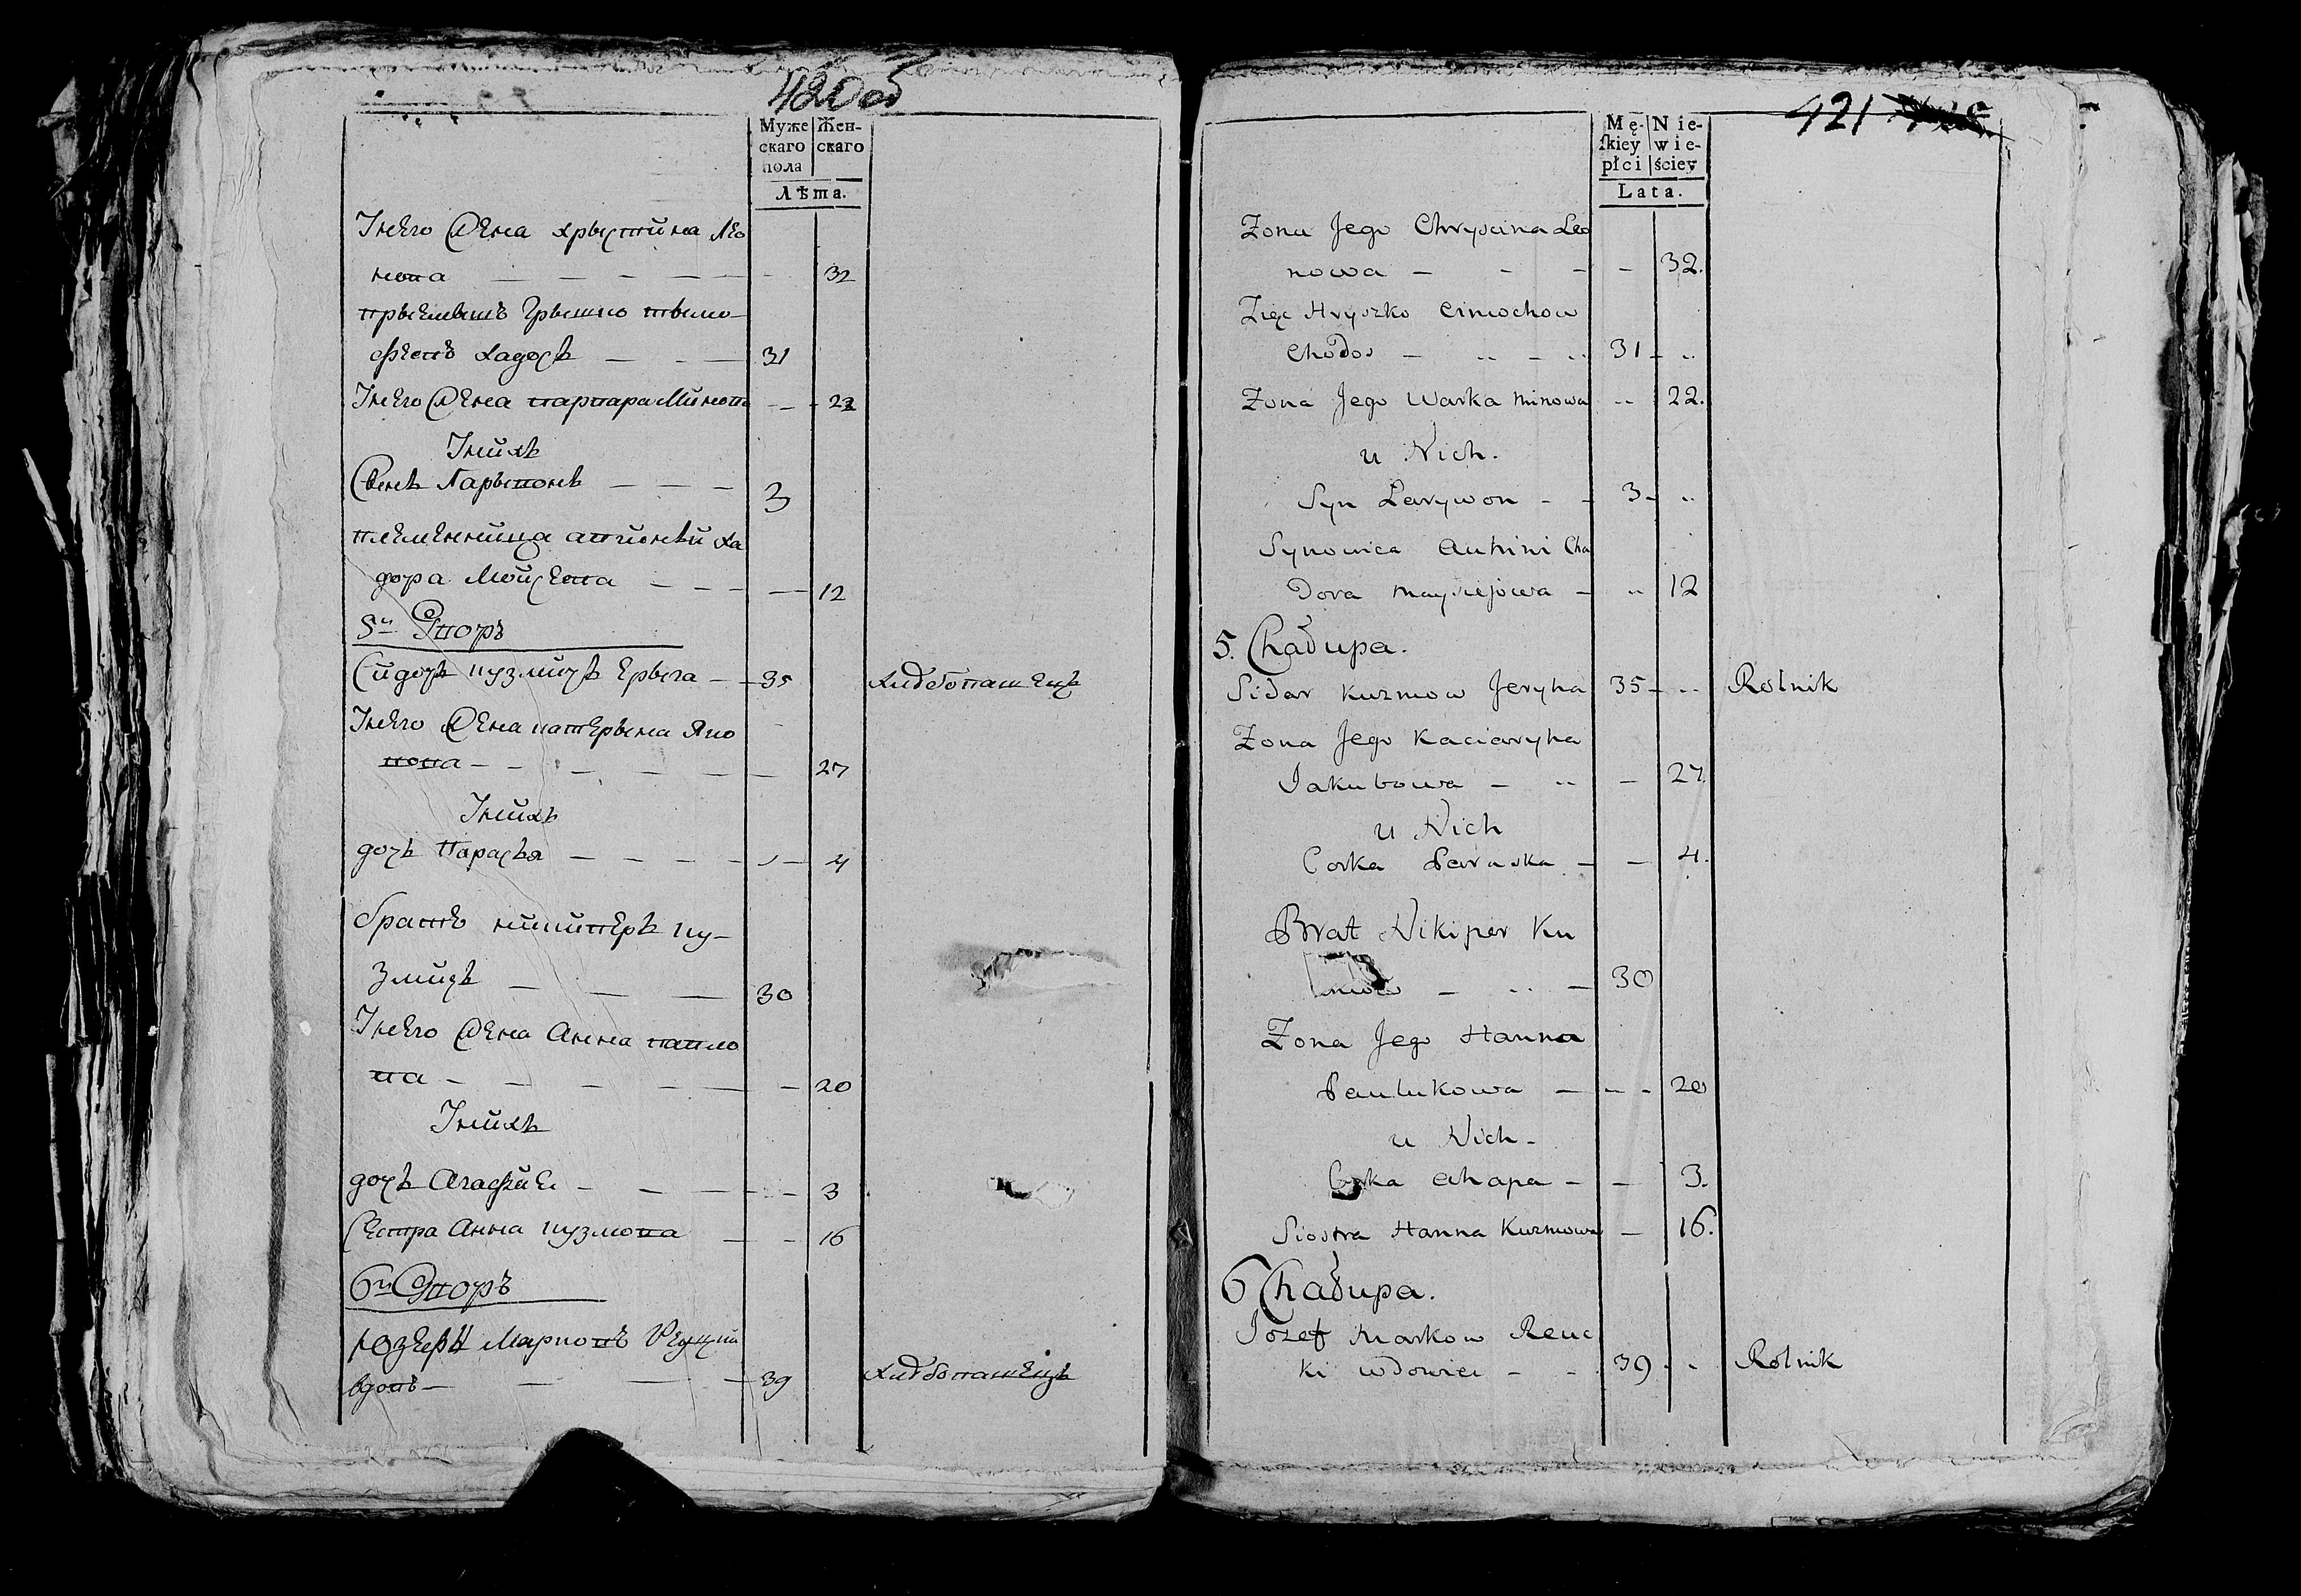 420 об
Муже
скаго
пола
Жен-
скаго
Лѣта.
У него жена хрыстина Лео
нова — — — — — 32
прыемышъ Грышко тымо-
фѣевъ хадосъ — — — 31
У него жена варвара Минова — — 22
У нихъ
Сынъ Ларывонъ — — — 3
племенница авгиньи ха
дора Мойсева — — — 12
5й Дворъ
Сидоръ кузмичъ Ерыга — 35 хлѣбопашецъ
У него жена катерына Яко
вова — — — — — 27
У нихъ
дочь Парасья — — — — 4
братъ никиперъ ку-
змичъ — — — 30
У него жена Анна павло
ва — — — — — 20
У нихъ
дочь Агафия — — — — 3
Сестра Анна кузмова — — 16
6й Дворъ
Юзефъ Марковъ Реуцки
вдовъ — — — 39 хлѣбопашецъ
421
Mę-
ſkiey
płci
Nie-
wie-
ściey
Lata.
Zona Jego Chryscina Leo
nowa — - - - 32.
Zięc Hryszko Cimochow
Chodos — .. — .. 31 — ..
Zona Jego Warka Minowa .. 22.
u Nich.
Syn Larywon - - 3 - ..
Synowica Auhini Cha
dora Maysiejowa — .. 12
5. Chałupa.
Sidor Kuzmow Jeryha 35 — .. Rolnik
Zona Jego Kaciaryha
Jakubowa — .. — 27.
u Nich
Corka Paraska — — 4.
Brat Nikiper Ku
mow — .. — 30
Zona Jego Hanna
Pawlukowa — - - 20
u Nich -
Corka Ahapa — — 3.
Siostra Hanna Kuzmowa — 16.
6 Chałupa.
Jozef Markow Reuc
ki wdowiec - - 39 - .. Rolnik